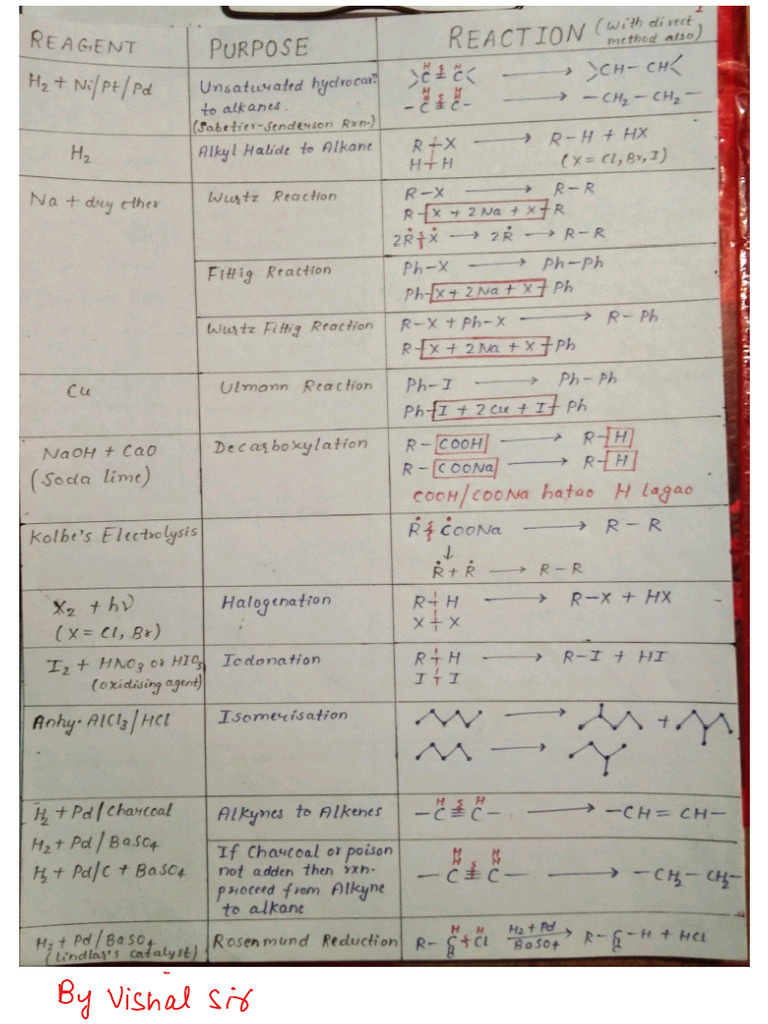 REAGENT PURPOSE REACTION (With direct method also)
H₂ + Ni/Pt/Pd Unsaturated hydrocarⁿ. to alkanes. (Sabetier-Senderson Rxn.)
>C=C< → >CH-CH<
-C≡C- → -CH₂-CH₂-
H₂ Alkyl Halide to Alkane
R-X → R-H + HX
H-H (X = Cl, Br, I)
Na + dry ether Wurtz Reaction
R-X → R-R
R-X + 2Na + X-R
2R-X → 2R → R-R
Fittig Reaction
Ph-X → Ph-Ph
Ph-X + 2Na + X-Ph
Wurtz Fittig Reaction
R-X + Ph-X → R-Ph
R-X + 2Na + X-Ph
Cu Ulmann Reaction
Ph-I → Ph-Ph
Ph-I + 2Cu + I-Ph
NaOH + CaO (Soda lime) Decarboxylation
R-COOH → R-H
R-COONa → R-H
COOH/COONa hatao H lagao
Kolbe's Electrolysis
R-COONa → R-R
↓
R + R → R-R
X₂ + hν Halogenation
(X = Cl, Br)
R-H → R-X + HX
X-X
I₂ + HNO₃ or HIO₃ Iodonation
(oxidising agent)
R-H → R-I + HI
I-I
Anhy. AlCl₃/HCl Isomerisation
→ +
→
H₂ + Pd/Charcoal Alkynes to Alkenes
H H
-C≡C- → -CH=CH-
H₂ + Pd/BaSO₄
H₂ + Pd/C + BaSO₄
If Charcoal or poison
not adden then rxn.
proceed from Alkyne
to alkane
H H
H H
-C≡C- → -CH₂-CH₂-
H₂ + Pd/BaSO₄ Rosenmund Reduction
(lindlar's catalyst)
H H
R-C-Cl H₂ + Pd/BaSO₄ → R-C-H + HCl
By Vishal Sir